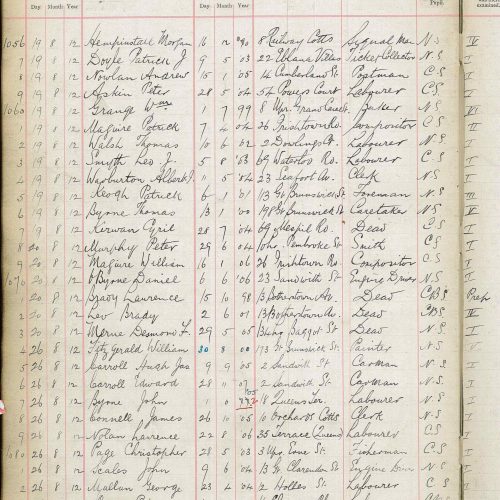 Day. Month Year Day. Month Year Pupil. examined.
1056 19 8 12 Hempinstall Morgan 16 12 '90 8 Railway Cotts Signal Man N.S IV
7 19 8 12 Doyle Patrick J 9 5 03 22 Villas Ticket Collector N.S
8 19 8 12 Nowlan Andrew 15 1 '05 14 Cumberland St. Postman C.S
9 19 8 12 Peter 28 5 04 54 Powers Court Labourer C.S
1060 19 8 12 Grange Wm 1 7 99 8 Upr. Grand Canal St. Baker N.S VI
1 19 8 12 Maguire Patrick 7 4 04 26 Irishtown Ro. Compositor C.S
2 19 8 12 Walsh Thomas 10 6 02 2 Dowlings Ct. Labourer N.S
3 19 8 12 Smyth Leo J. 5 8 '03 69 Waterloo Ro. Labourer C.S
4 19 8 12 Warburton Albert J. 11 5 04 23 Seafort Av. Clerk N.S
5 19 8 12 Keogh Patrick 6 1 '01 13 Gt Brunswick St. Foreman N.S
6 19 8 12 Byrne Thomas 13 1 '00 198 Gt Brunswick St. Caretaker N.S
7 19 8 12 Kirwan Cyril 28 7 '04 69 Mespil Ro. Dead C.S
8 20 8 12 Murphy Peter 29 6 04 Pembroke St. Smith C.S
9 20 8 12 Maguire William 16 1 06 26 Irishtown Ro. Compositor C.S
1070 20 8 12 O'Byrne Daniel 6 6 '06 23 Sandwith St. Engine Driver N.S
1 20 8 12 Brady Laurence 15 10 98 13 Bothertown Av. Dead CBS Prep
2 20 8 12 Leo Brady 2 6 01 13 Bothertown Av. Dead CBS IV
3 20 8 12 Desmond F. 29 5 05 Baggot St. Dead N.S
4 26 8 12 Fitz Gerald William 30 8 00 173 Gt Brunswick St. Painter N.S
5 26 8 12 Carroll Hugh Jas 9 9 05 2 Sandwith St. Carman N.S
6 26 8 12 Carroll Edward 28 11 07 2 Sandwith St. Carman N.S
7 26 8 12 Byrne John 1 18 Queens Ter. Labourer N.S
8 26 8 12 Connell James 26 10 05 10 Orchards Cotts Clerk N.S
9 26 8 12 Nolan Lawrence 22 8 06 35 Terrace (Queens) Labourer C.S
1080 26 8 12 Page Christopher 28 5 03 3 Upr. St. Fisherman C.S
1 26 8 12 Scales John 9 6 04 Clarendon St. Engine N.S
2 26 8 12 Mallon George 23 4 04 2 Holles St. Labourer C.S